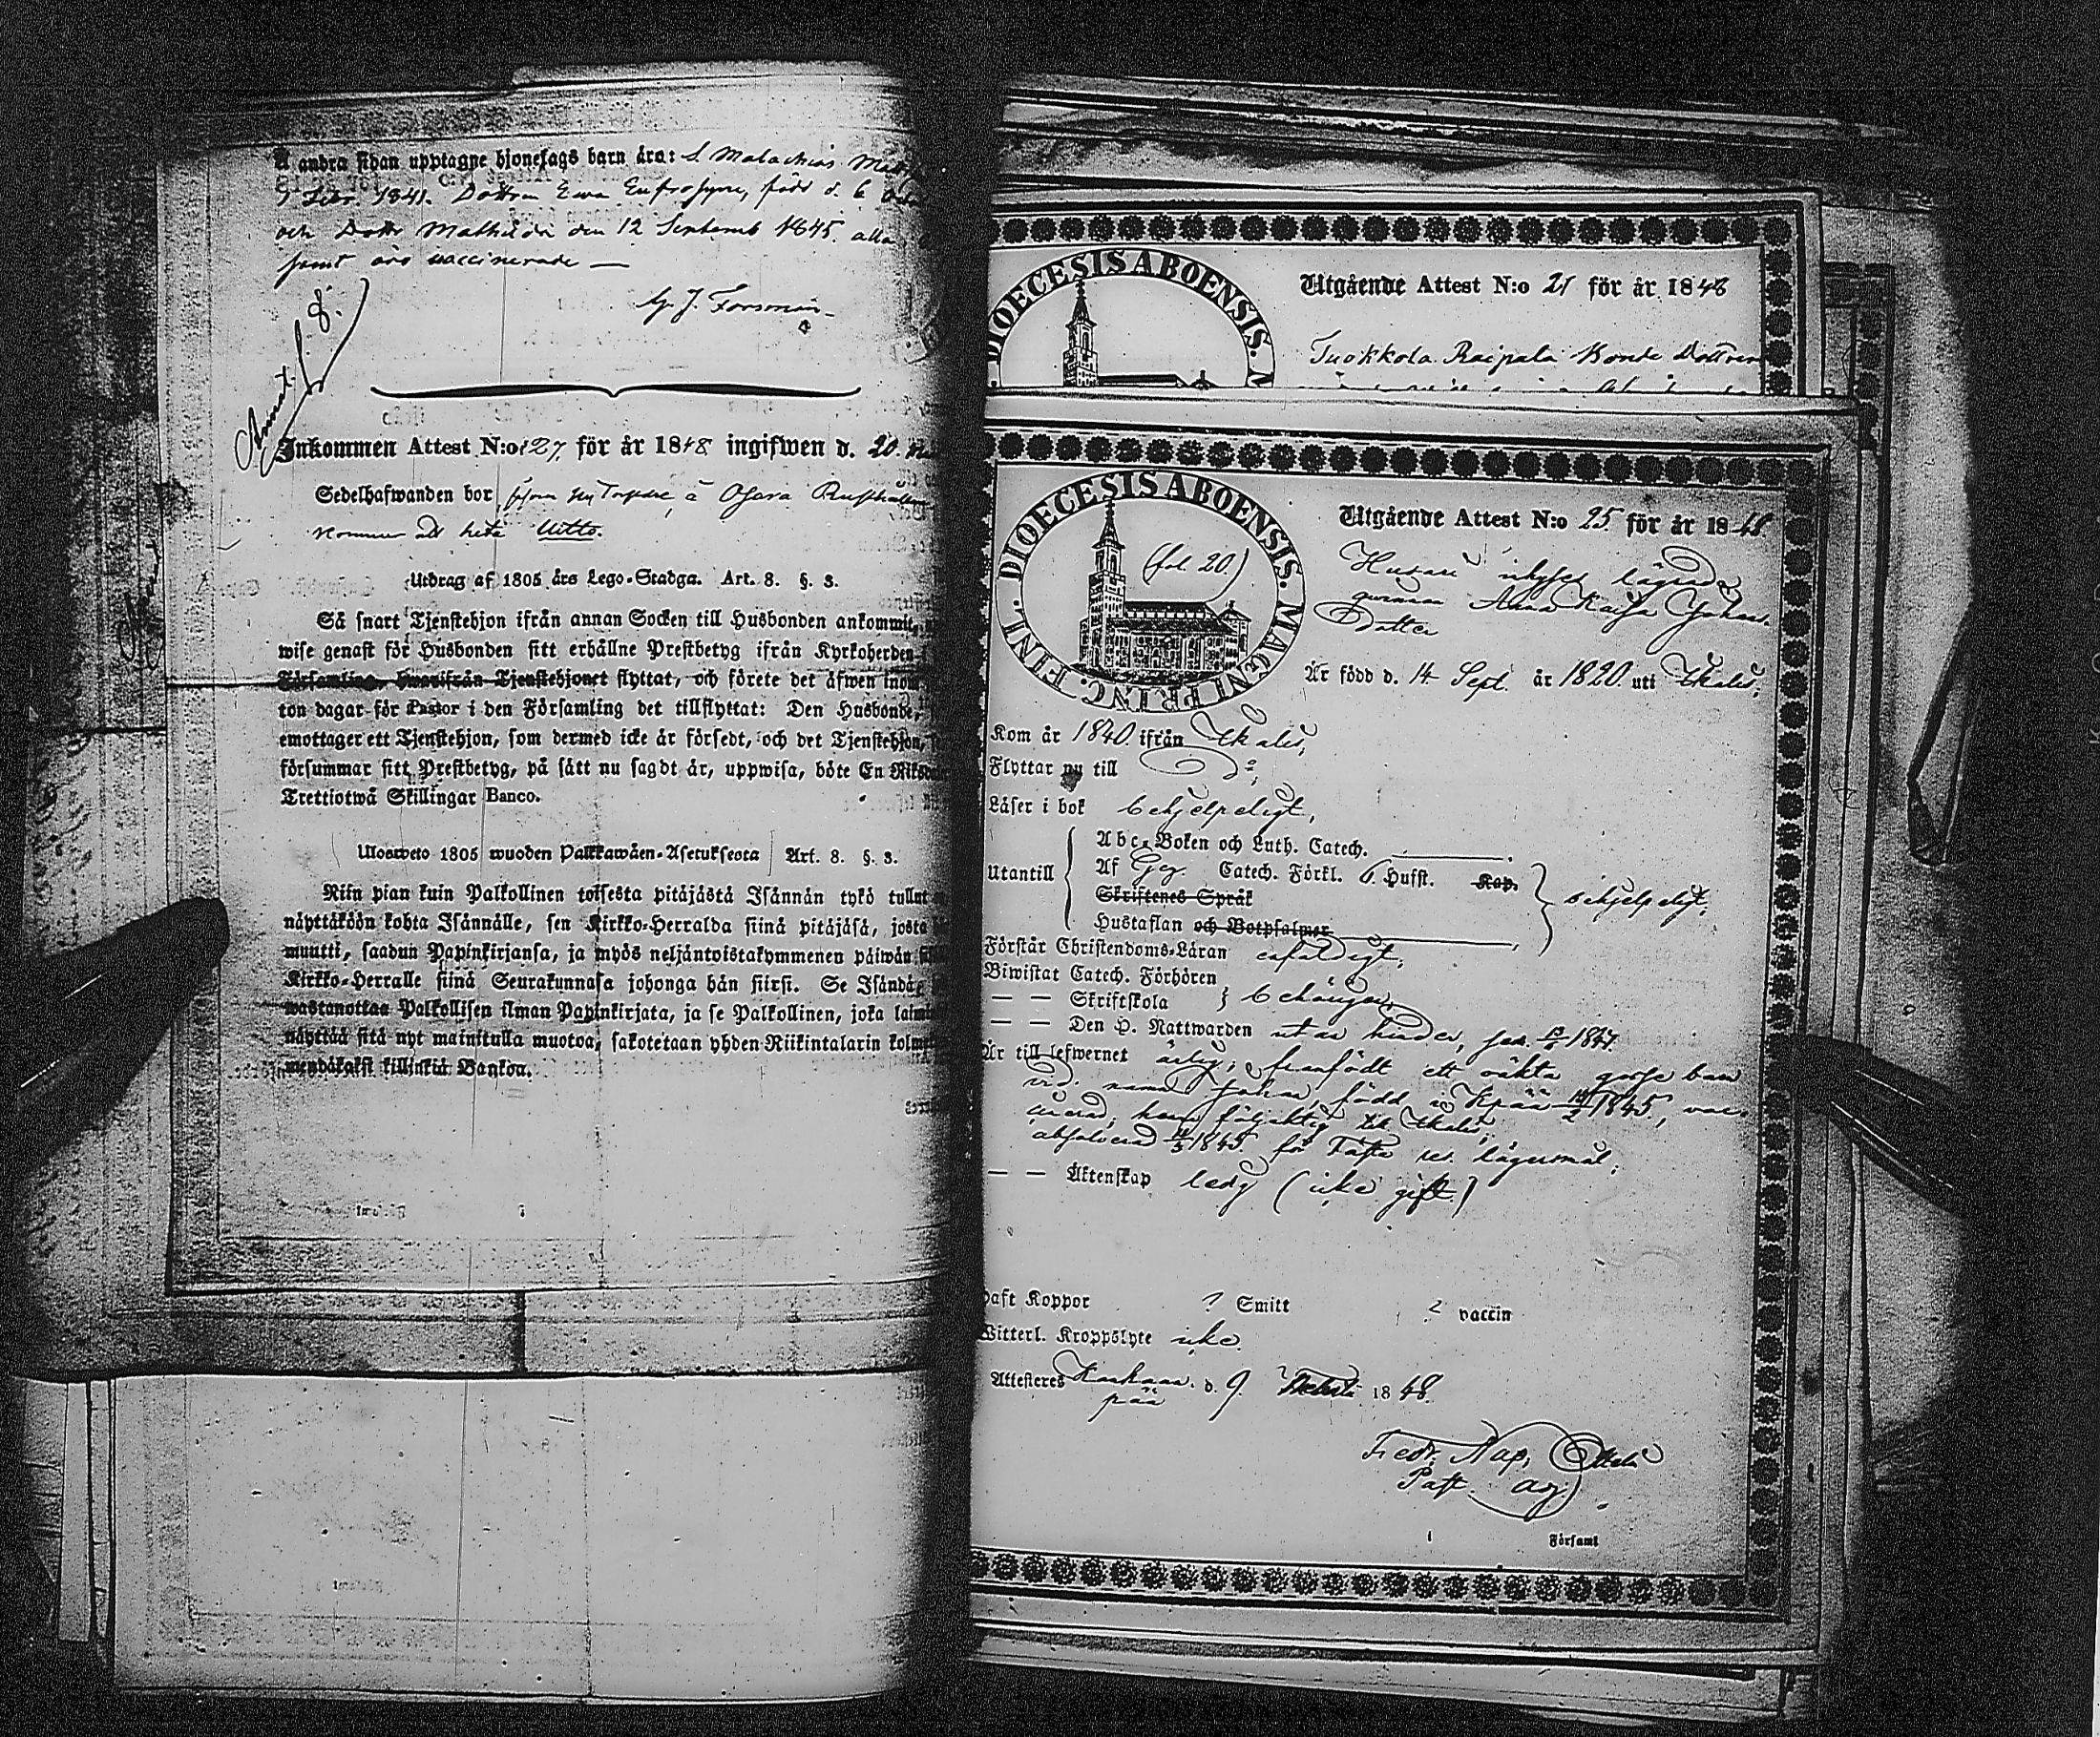 Å andra sidan upptagne hjonelags barn äro: S. Malachias
Febr. 1841. Dottren Ewa Eufrosyne, född d. 6
och Dottr Mathilda den 12 Septemb 1845. alla
samt äro vaccinerade —
G. J. Forsman
Inkommen Attest N:o 127. för år 1848 ingifwen d. 20.
Sedelhafwanden bor som ny Torpare å Ojara
kommer att heta Uitto.
Utdrag af 1805 års Lego-Stadga. Art. 8. §. 3.
Så snart Tjenstehjon ifrån annan Socken till Husbonden ankommit,
wise genast för Husbonden sitt erhållne Prestbetyg ifrån Kyrkoherden
Församling, hwarifrån Tjenstehjonet flyttat, och förete det äfwen inom
ton dagar för Pastor i den Församling det tillflyttat: Den Husbonde,
emottager ett Tjenstehjon, som dermed icke är försedt, och det Tjenstehjon,
försummar sitt Prestbetyg, på sätt nu sagdt är, uppwisa, böte En
Trettiotwå Skillingar Banco.
Ulosweto 1805 wuoden Palkkawäen-Asetuksesta Art. 8. §. 3.
Niin pian kuin Palkollinen toisesta pitäjästä Isännän tykö tullut
näyttäköön kohta Isännälle, sen Kirkko-Herralda siinä pitäjäsä, josta
muutti, saadun Papinkirjansa, ja myös neljäntoistakymmenen päiwän
Kirkko-Herralle siinä Seurakunnasa johonga hän siirsi. Se Isändä,
wastanottaa Palkollisen ilman Papinkirjata, ja se Palkollinen, joka
näyttää sitä nyt mainitulla muotoa, sakotetaan yhden Riikintalarin
mendäkaksi killinkiä Bankou.
DIOECESIS ABOENSIS. M
Utgående Attest N:o 21 för år 1848
Tuokkola Raipala Bonde Dottren
DIOECESIS ABOENSIS. MAGNI PRINC. FINL.
(fol. 20.)
Utgående Attest N:o 25 för år 1848.
Husari inhyses lägrade
qwinnan Anna Kaisa Johans
Dotter
Är född d. 14 Sept. år 1820. uti Ikalis,
Kom år 1840. ifrån Ikalis,
Flyttar nu till Do,
Läser i bok behjelpeligt,
Utantill
Abc-Boken och Luth. Catech.
Af Geg. Catech. Förkl. 6. Hufst. Kap.
Skriftenes Språk
Hustaflan och Botpsalmer
behjelpeligt,
Förstår Christendoms-Läran enfaldigt,
Biwistat Catech. Förhören
— — Skriftskola } behörigen,
— — Den H. Nattwarden utan hinder, 1847.
Är till lefwernet ärlig; framfödt ett oäkta gosse barn
vid namn Johan, född i Kpää 1845, vac-
cinerad, hans följaktig till Ikalis,
absolverad 1845. för lägersmål;
— — Äktenskap ledig (icke gift)
Haft Koppor ? Smitt ? vaccin
Witterl. Kroppslyte icke.
Attesteres Kankaan- d. 9 1848.
pää
Fredr. Nap.
Past. adj.
Församl